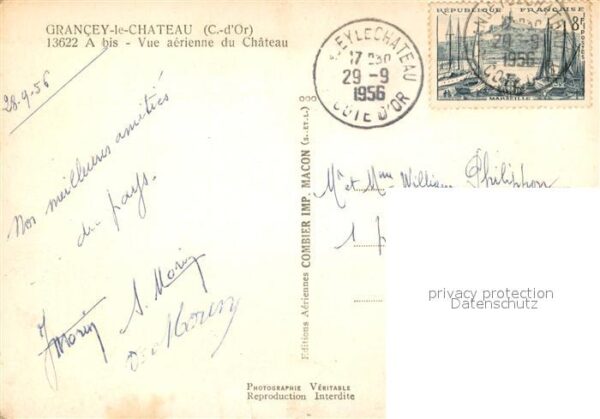 GRANÇEY-le-CHATEAU (C.-d'Or)
13622 A bis - Vue aérienne du Château
28-9-56
Nos meilleures amitiés
du pays.
J Morin
S. Morin
Morin
Editions Aériennes COMBIER IMP. MACON (S.-ET-L.)
EYLECHATEAU
17 H30
29 -9
1956
COTE D'OR
REPUBLIQUE FRANÇAISE
8F
POSTES
MARSEILLE
29 -9
1956
Mr et Mme William Philippon
1
privacy protection
Datenschutz
PHOTOGRAPHIE VÉRITABLE
Reproduction Interdite